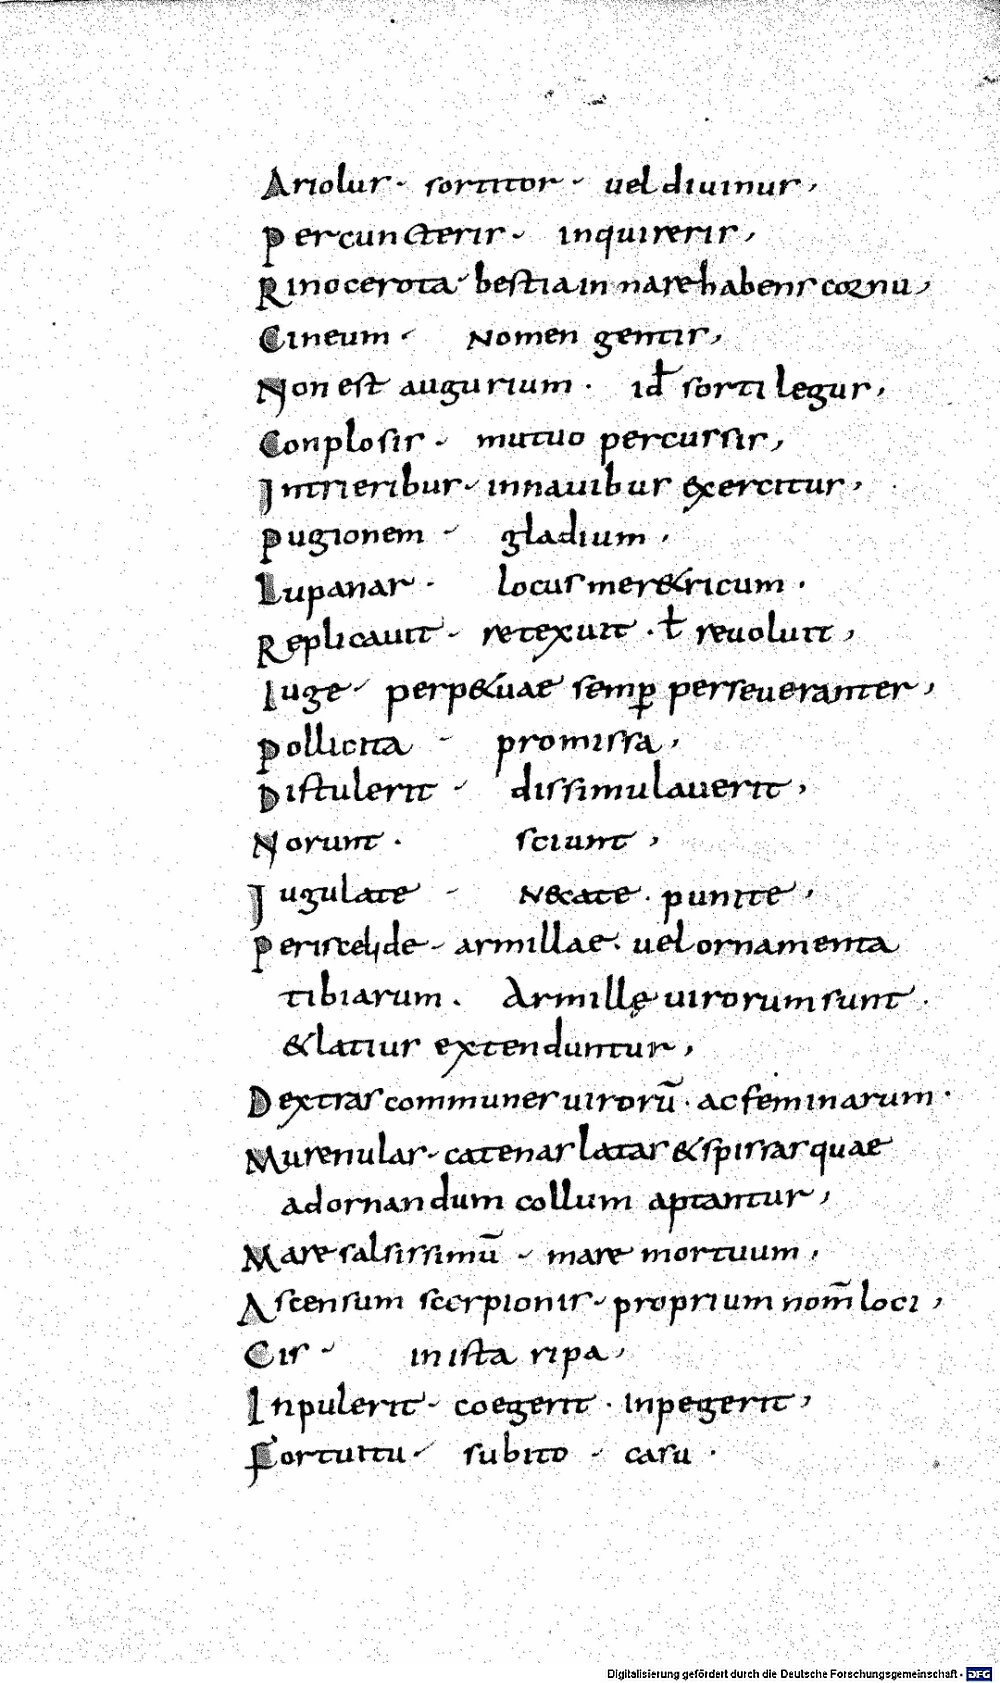 Ariolus · sortitor · vel divinus,
Percuncteris · inquireris,
Rinocerota · bestia in nare habens cornu,
Cineum · Nomen gentis,
Non est augurium · id̄ sortilegus,
Conplosis · mutuo percussis,
Intrieribus · in navibus exercitus,
Pugionem · gladium,
Lupanar · locus mer&ricum ·
Replicavit · retexuit · ł revoluit,
Iuge · perp&uae semꝑ perseveranter,
Pollicita · promissa,
Distulerit · dissimulaverit,
Norunt · sciunt,
Iugulate · N&cate · punite,
Periscelide · armillae · vel ornamenta
tibiarum · Armillę virorum sunt ·
& latius extenduntur,
Dextras communes virorū · ac feminarum ·
Murenulas · catenas latas & spissas quae
adornandum collum aptantur,
Mare salsissimū · mare mortuum,
Ascensum scorpionis · proprium nom̄ loci,
Cis · in ista ripa,
Inpulerit · coegerit · inpegerit,
Fortuitu · subito · casu ·
Digitalisierung gefördert durch die Deutsche Forschungsgemeinschaft - DFG